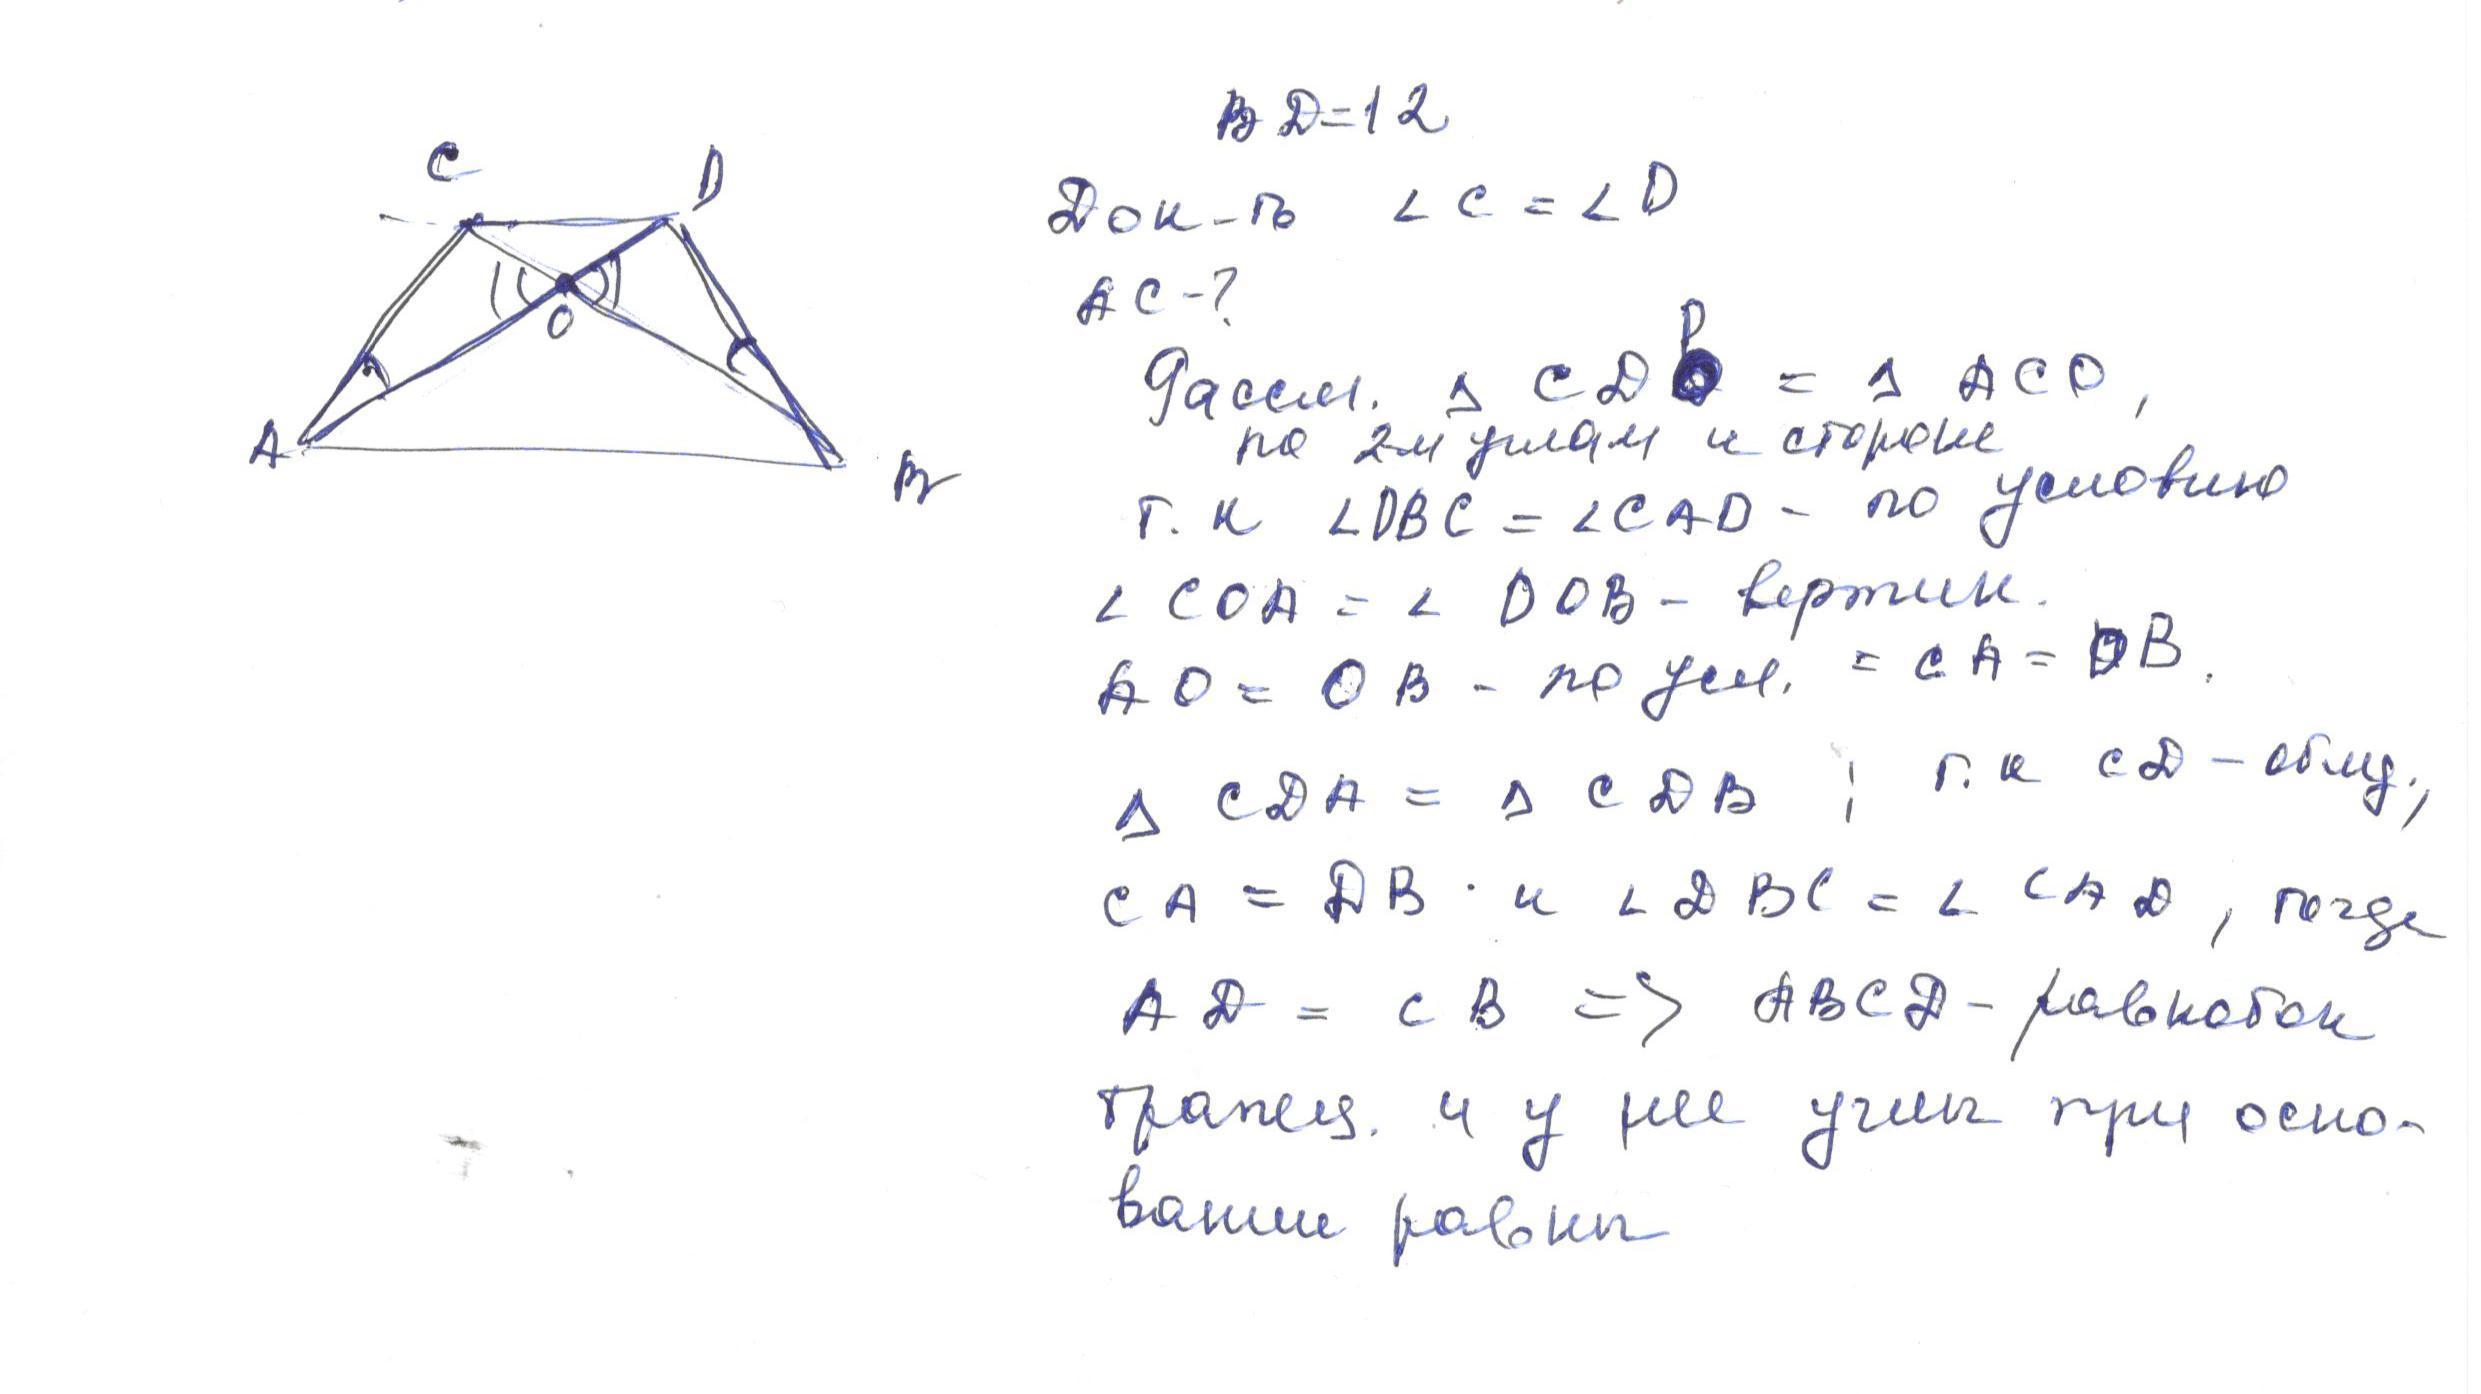 C
D
O
A
B
BD=12
Док-ть ∠C = ∠D
AC-?
D
Рассм. Δ CDO = Δ ACO,
по 2м углам и стороне
т.к ∠DBC = ∠CAD - по условию
∠COA = ∠ DOB - вертик.
AO = OB - по усл. = CA = DB.
Δ CDA = Δ CDB ; т.к CD - общ.,
CA = DB и ∠DBC = ∠ CAD, тогда
AD = CB => ABCD - равнобок
трапец. и у нее углы при осно-
вании равны